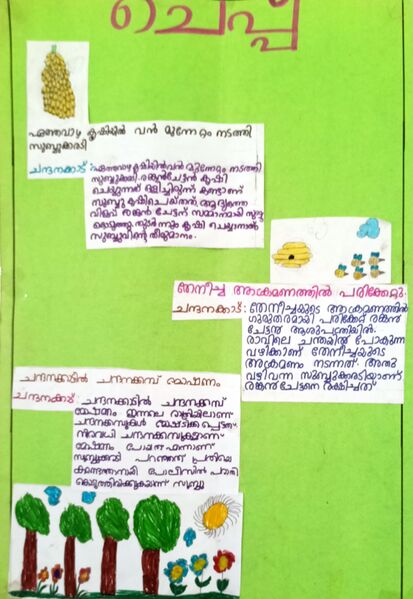 ചെപ്പ്
ഏത്തവാഴ കൃഷിയിൽ വൻ മുന്നേറ്റം നടത്തി
സുബ്ബുക്കരടി
ചന്ദനക്കാട്: ഏത്തവാഴ കൃഷിയിൽ വൻ മുന്നേറ്റം നടത്തി
സുബ്ബുക്കരടി. രങ്കൻചേട്ടൻ കൃഷി
ചെയ്യുന്നത് ഒളിച്ചിരുന്ന് കണ്ടാണ്
സുബ്ബു കൃഷിചെയ്തത്. ആദ്യത്തെ
വിളവ് രങ്കൻ ചേട്ടന് സമ്മാനമായി സുബ്ബു
കൊടുത്തു. തുടർന്നും കൃഷി ചെയ്യാനാണ്
സുബ്ബുവിന്റെ തീരുമാനം.
തേനീച്ച ആക്രമണത്തിൽ പരിക്കേറ്റു
ചന്ദനക്കാട്: തേനീച്ചയുടെ ആക്രമണത്തിൽ
ഗുരുതരമായി പരിക്കേറ്റ് രങ്കൻ
ചേട്ടൻ ആശുപത്രിയിൽ.
രാവിലെ ചന്തയിൽ പോകുന്ന
വഴിക്കാണ് തേനീച്ചയുടെ
ആക്രമണം നടന്നത്. അതു
വഴിവന്ന സുബ്ബുക്കരടിയാണ്
രങ്കൻചേട്ടനെ രക്ഷിച്ചത്
ചന്ദനക്കാട്ടിൽ ചന്ദനക്കമ്പ് മോഷണം
ചന്ദനക്കാട്: ചന്ദനക്കാട്ടിൽ ചന്ദനക്കമ്പ്
മോഷണം ഇന്നലെ രാത്രിയിലാണ്
ചന്ദനക്കമ്പുകൾ മോഷ്ടിക്കപ്പെട്ടത്.
നിരവധി ചന്ദനക്കമ്പുകളാണ്
മോഷണം പോയത് എന്നാണ്
സുബ്ബുക്കരടി പറഞ്ഞത് പ്രതിയെ
കണ്ടെത്താനായി പോലീസിൽ പരാതി
കൊടുത്തിരിക്കുകയാണ് സുബ്ബു